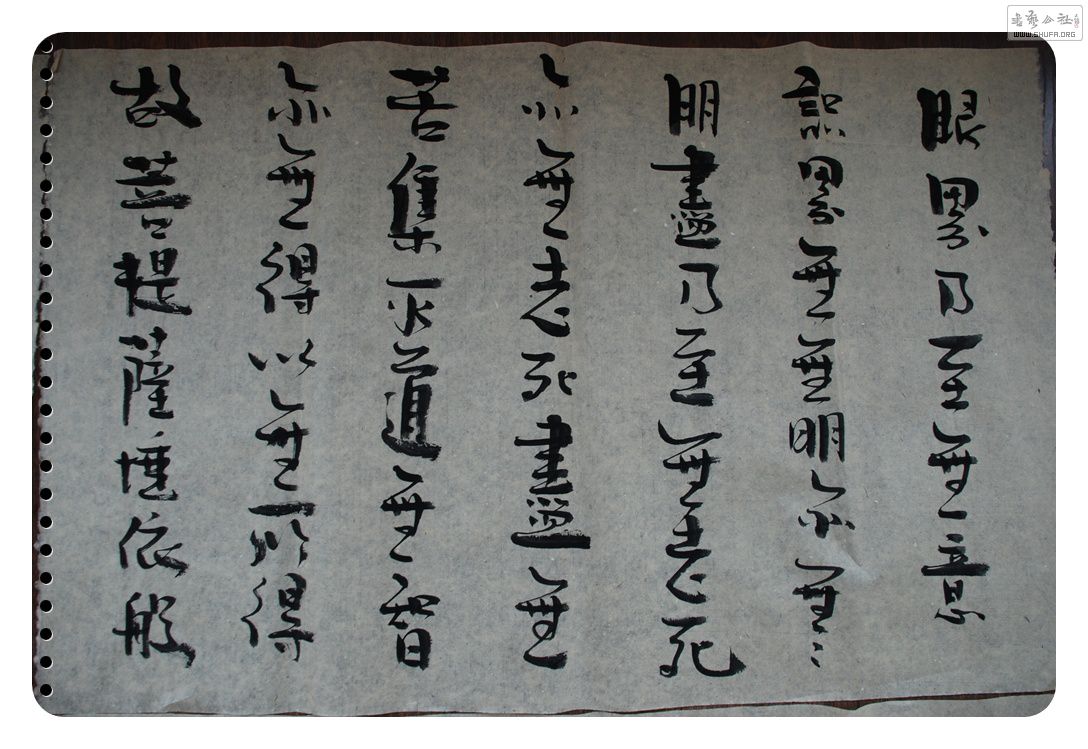 眼界乃至無意
識界無無明亦無〻
明盡乃至無老死
亦無老死盡無
苦集灭道無智
亦無得以無所得
故菩提薩埵依般
書藝公社
WWW.SHUFA.ORG